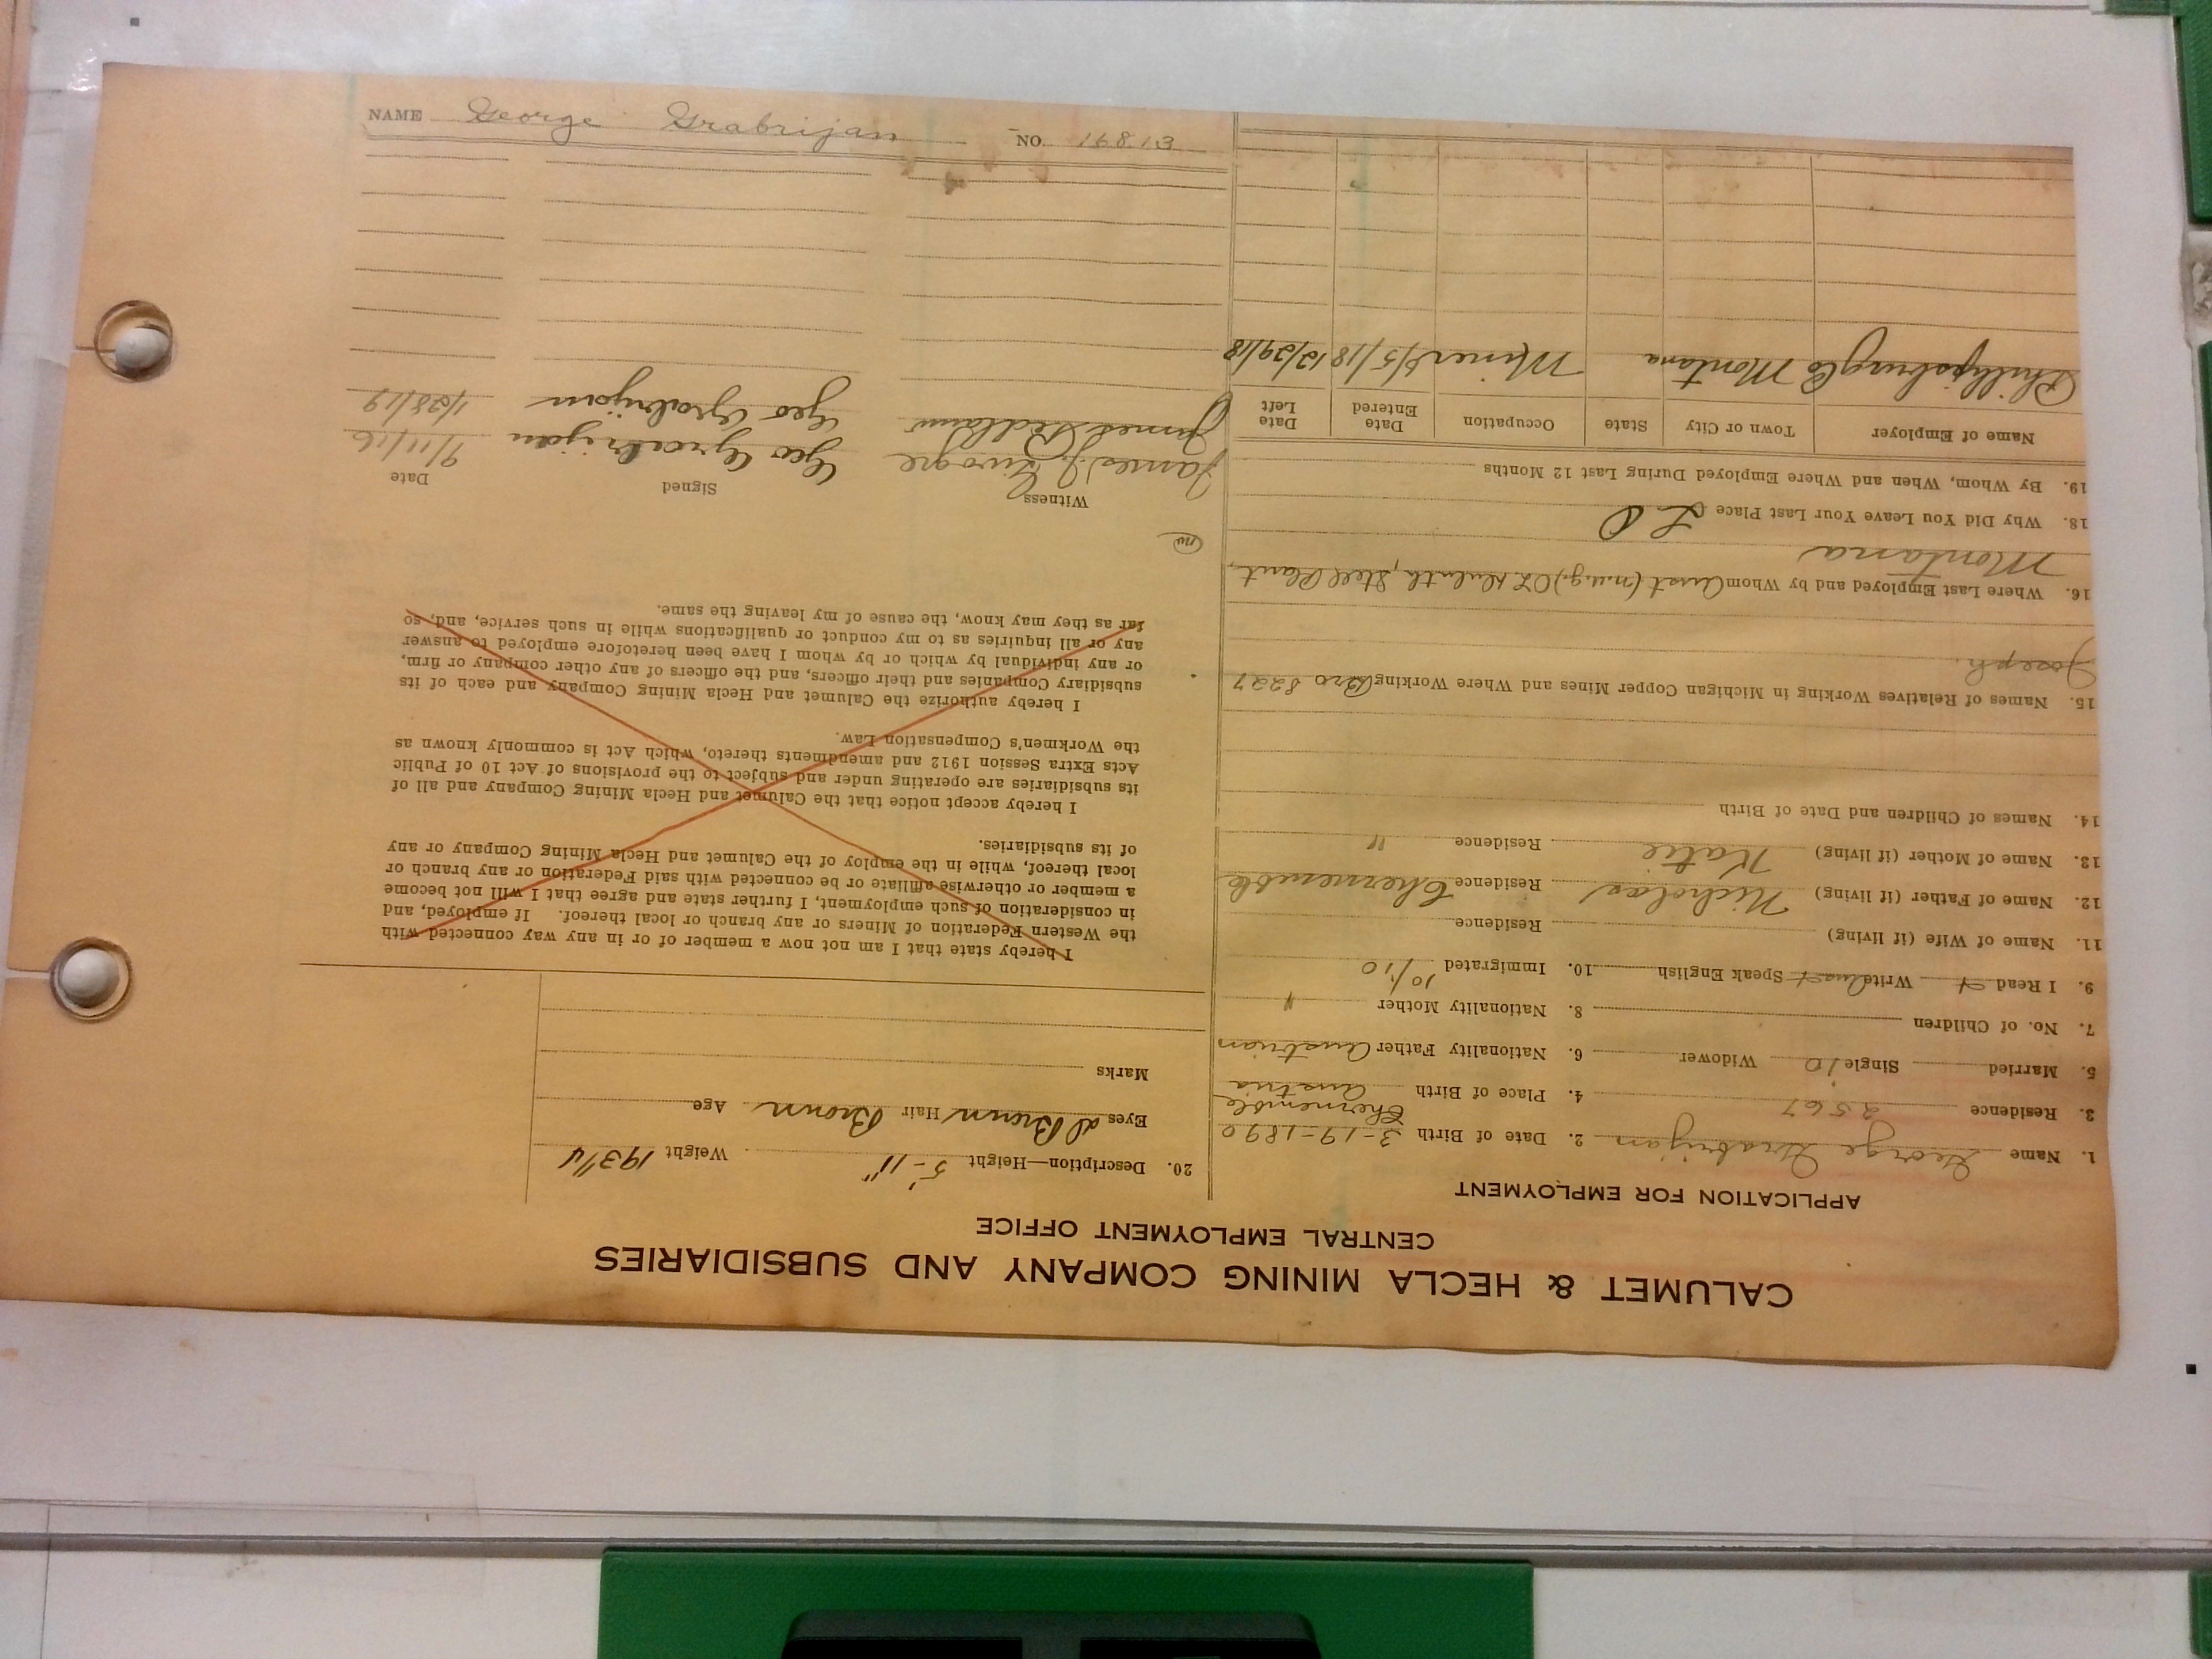 CALUMET & HECLA MINING COMPANY AND SUBSIDIARIES
CENTRAL EMPLOYMENT OFFICE
APPLICATION FOR EMPLOYMENT
1. Name George Grabrijan 2. Date of Birth 3-19-1890
3. Residence 2567 4. Place of Birth Chernemble Austria
5. Married Single Widower 6. Nationality Father Austrian
7. No. of Children 8. Nationality Mother "
9. I Read Write Speak English 10. Immigrated 10/10
11. Name of Wife (if living) Residence
12. Name of Father (if living) Nicholas Residence Chernemble
13. Name of Mother (if living) Katie Residence "
14. Names of Children and Date of Birth
15. Names of Relatives Working in Michigan Copper Mines and Where Working Bro 8227
Joseph.
16. Where Last Employed and by Whom Duluth, Steel Plant,
Montana
18. Why Did You Leave Your Last Place
19. By Whom, When and Where Employed During Last 12 Months
Name of Employer Town or City State Occupation Date Entered Date Left
Phillipsburg Co Montana Miner 6/5/18 12/29/18
20. Description—Height 5'-11" Weight 193 1/4
Eyes Brown Hair Brown Age
Marks
I hereby state that I am not now a member of or in any way connected with
the Western Federation of Miners or any branch or local thereof. If employed, and
in consideration of such employment, I further state and agree that I will not become
a member or otherwise affiliate or be connected with said Federation or any branch or
local thereof, while in the employ of the Calumet and Hecla Mining Company or any
of its subsidiaries.
I hereby accept notice that the Calumet and Hecla Mining Company and all of
its subsidiaries are operating under and subject to the provisions of Act 10 of Public
Acts Extra Session 1912 and amendments thereto, which Act is commonly known as
the Workmen's Compensation Law.
I hereby authorize the Calumet and Hecla Mining Company and each of its
subsidiary Companies and their officers, and the officers of any other company or firm,
or any individual by which or by whom I have been heretofore employed to answer
any or all inquiries as to my conduct or qualifications while in such service, and, so
far as they may know, the cause of my leaving the same.
Witness Signed Date
James Geo Grabrijan 9/11/16
James Geo Grabrijan 1/28/19
NAME George Grabrijan NO. 16813